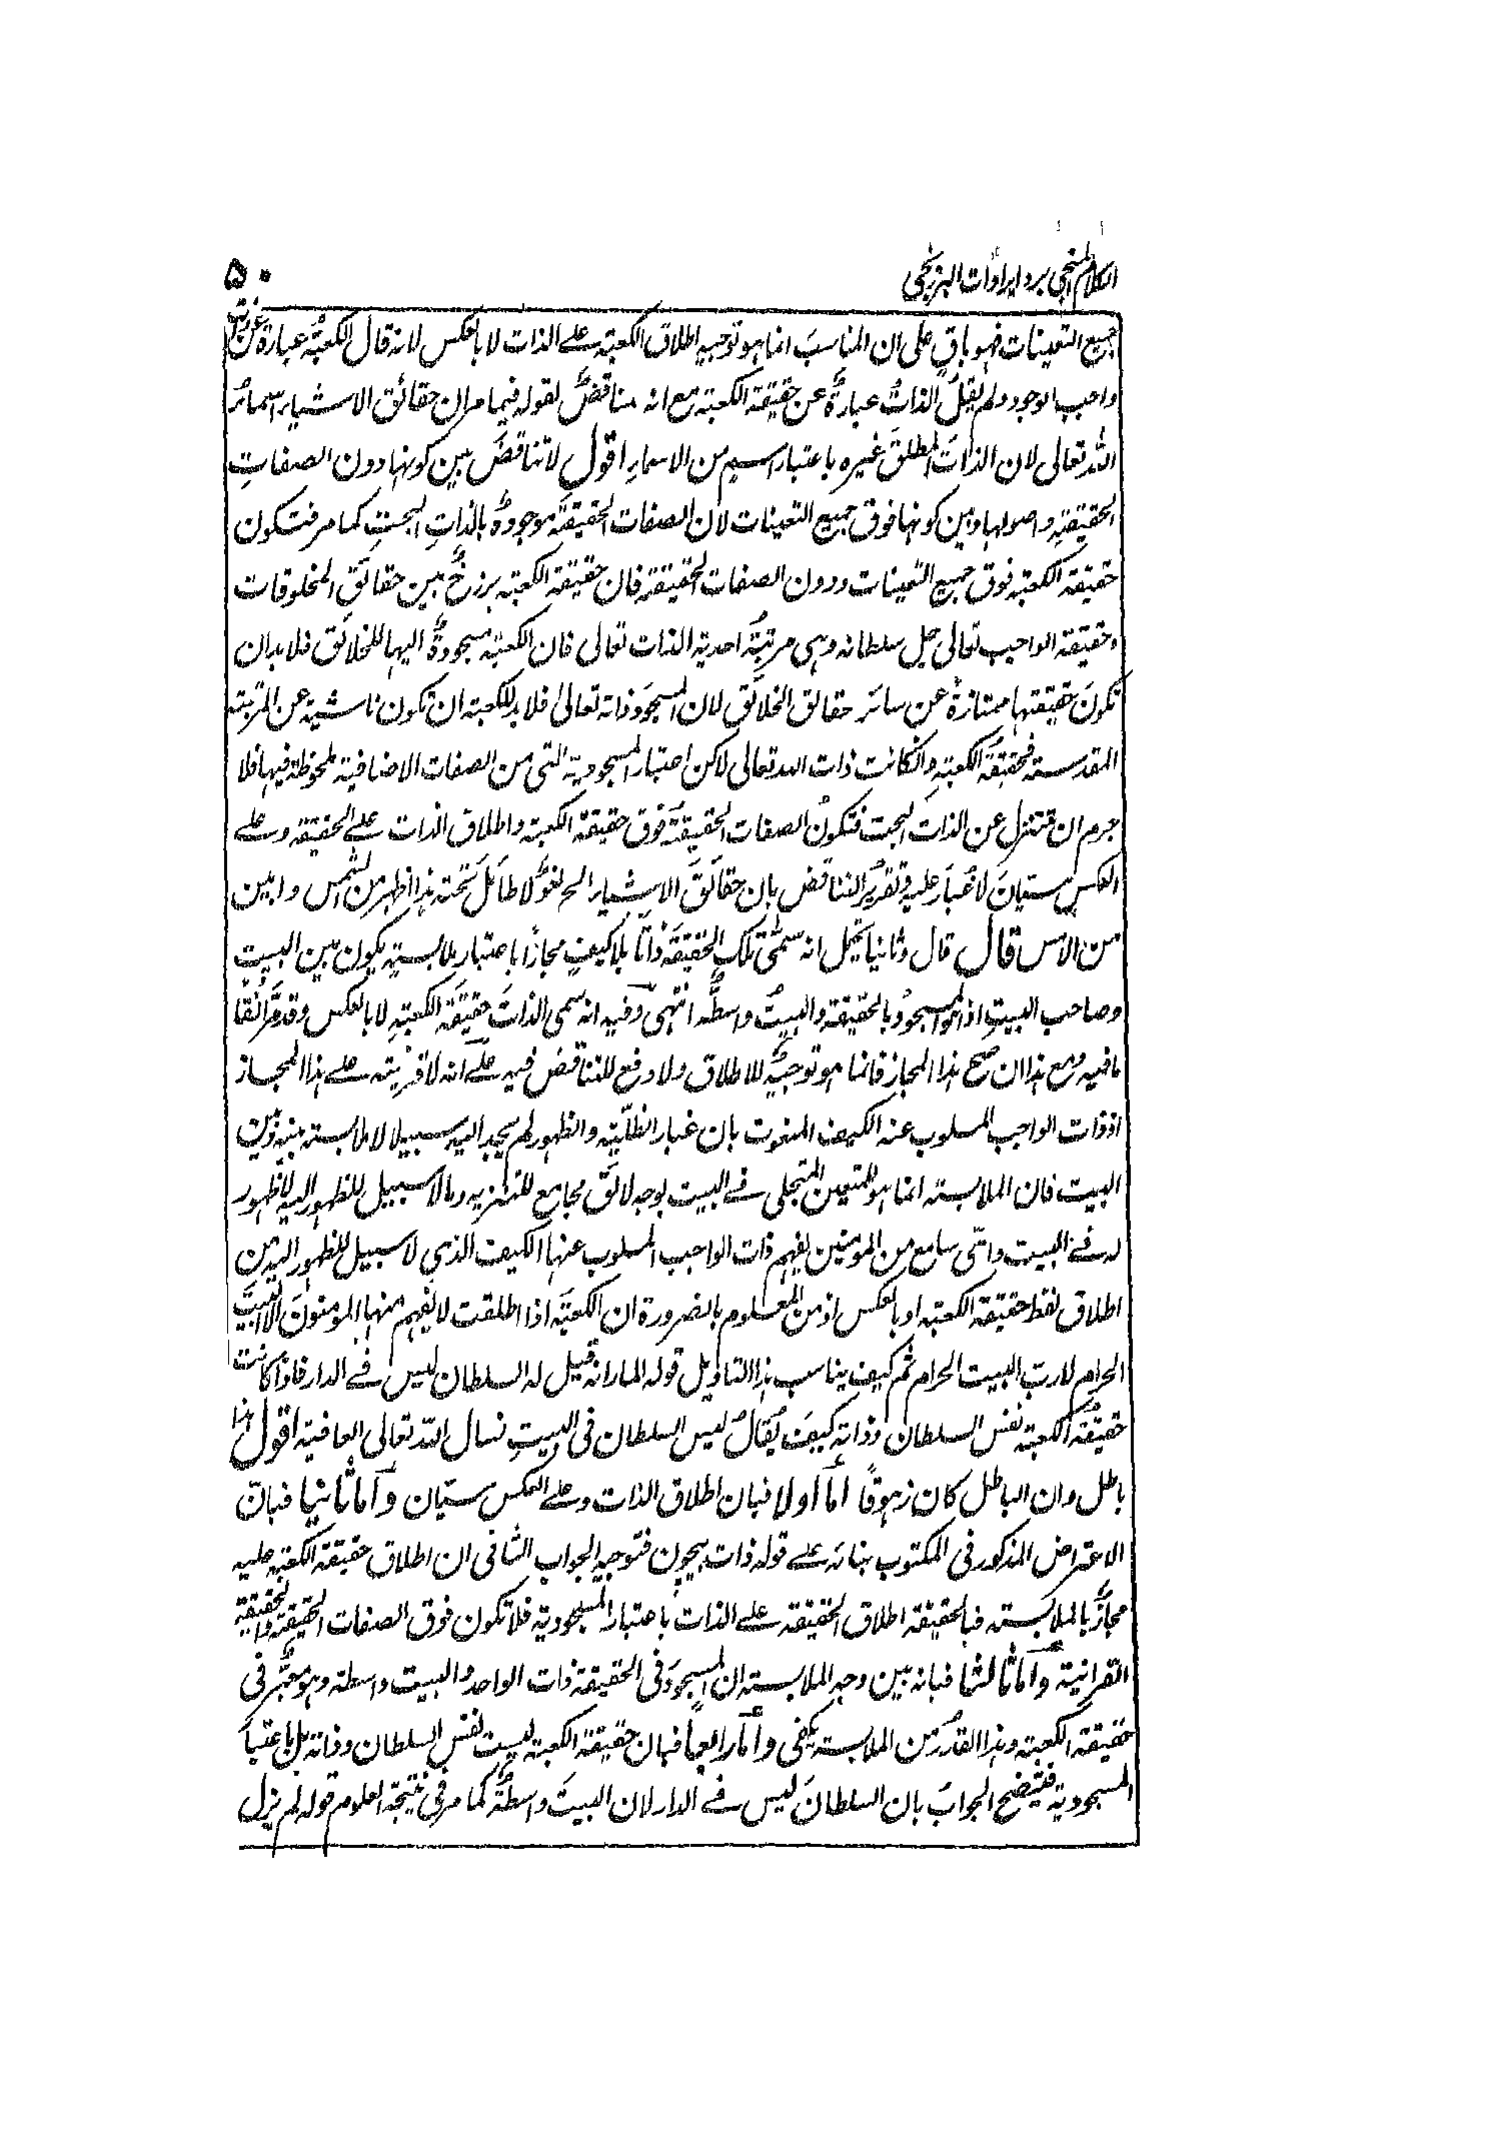 الكلام المنجي برد ايرادات البرزنجي
۵۰
جميع التعينات فهو باقٍ على ان المناسبَ انما هو توجيه اطلاق الكعبة على الذات لا بالعكس لانه قال الكعبةُ عبارة عن
واجب الوجود ولم يقل الذاتُ عبارةٌ عن حقيقة الكعبة مع انه مناقضٌ لقوله فيما مر ان حقائق الاشياء اسماءُ
الله تعالى لان الذاتَ المطلقَ غيره باعتبار اسم من الاسماء اقول لا تناقضَ بين كونها دون الصفاتِ
الحقيقةِ واصولها وبين كونها فوق جميع التعينات لان الصفات الحقيقةَ موجودةٌ بالذاتِ البحتِ كما مر فتكون
حقيقة الكعبة فوق جميع التعينات ودون الصفات الحقيقة فان حقيقة الكعبة برزخٌ بين حقائقِ المخلوقات
وحقيقة الواجب تعالى جل سلطانه وهى مرتبةُ احدية الذات تعالى فان الكعبة مسجودةٌ اليها للخلائق فلا بد ان
تكونَ حقيقتها ممتازةً عن سائر حقائق الخلائق لان المسجودَ ذاته تعالى فلا بد للكعبة ان تكون ناشية عن المرتبة
المقدسة فحقيقةُ الكعبةِ وان كانت ذات الله تعالى لاكن اعتبار المسجودية التى من الصفات الاضافية ملحوظة فيها فلا
جرم ان تتنزل عن الذات البحت فتكونُ الصفات الحقيقةُ فوق حقيقة الكعبة واطلاق الذات على الحقيقة وعلى
العكس سيانَ لا غبارَ عليه وتقريرُ التناقض بان حقائقَ الاشياء الخ لغوٌ لا طائل تحته هذا اظهر من الشمس وابين
من الامس قال قال وثانيا يحتمل انه سمى تلك الحقيقةَ ذاتًا بلا كيفٍ مجازًا باعتبار ملابسةٍ يكون بين البيت
وصاحب البيت اذ هو المسجودُ بالحقيقة والبيتُ واسطةٌ انتهى وفيه انه سمى الذاتَ حقيقةَ الكعبةِ لا بالعكس وقد مرّ انفًا
ما فيه ومع هذا ان صح هذا المجاز فانما هو توجيهٌ للاطلاق ولا دفع للتناقض فيه على انه لا قرينة على هذا المجاز
اذ ذات الواجب المسلوب عنه الكيف المنعوت بان غبار الظلّية والظهور لم يجد اليه سبيلا لا ملابسة بينه وبين
البيت فان الملابسة انما هو للمتعين المتجلى فى البيت بوجه لائق مجامع للتنزيه وما لا سبيل للظهور اليه لا ظهور
له فى البيت واىّ سامع من المومنين يفهم ذات الواجب المسلوب عنها الكيف الذى لا سبيل للظهور اليه من
اطلاق لفظ حقيقة الكعبة او بالعكس اذ من المعلوم بالضرورة ان الكعبةَ اذا اطلقت لا يفهم منها المومنونَ الا البيتَ
الحرام لا رب البيت الحرام ثم كيف يناسب هذا التاويل قوله المار انه قيل له السلطان ليس فى الدار فاذا كانت
حقيقةُ الكعبة نفس السلطان وذاته كيف يُقالُ ليس السلطان فى البيتِ نسال الله تعالى العافية اقول هذا
باطل وان الباطل كان زهوقًا اما اولا فبان اطلاق الذات وعلى العكس سيّان واما ثانيا فبانّ
الاعتراض المذكور فى المكتوب بنائه على قوله ذات بيچون فتوجيه الجواب الثانى ان اطلاق حقيقة الكعبة عليه
مجازٌ بالملابسة فبالحقيقة اطلاق الحقيقة على الذات باعتبار المسجودية فلا تكون فوق الصفات الحقيقة والحقيقة
القرانية واما ثالثا فبانه بين وجه الملابسة ان المسجودَ فى الحقيقة ذات الواحد والبيت واسطة وهو معتبرٌ فى
حقيقة الكعبة وهذا القدرُ من الملابسة يكفى واما رابعا فبان حقيقة الكعبة ليست نفس السلطان وذاته بل باعتبار
المسجودية فيتضح الجوابَ بان السلطانَ ليس فى الدار لان البيتَ واسطةٌ كما مر فى نتيجة العلوم قوله لم يزل